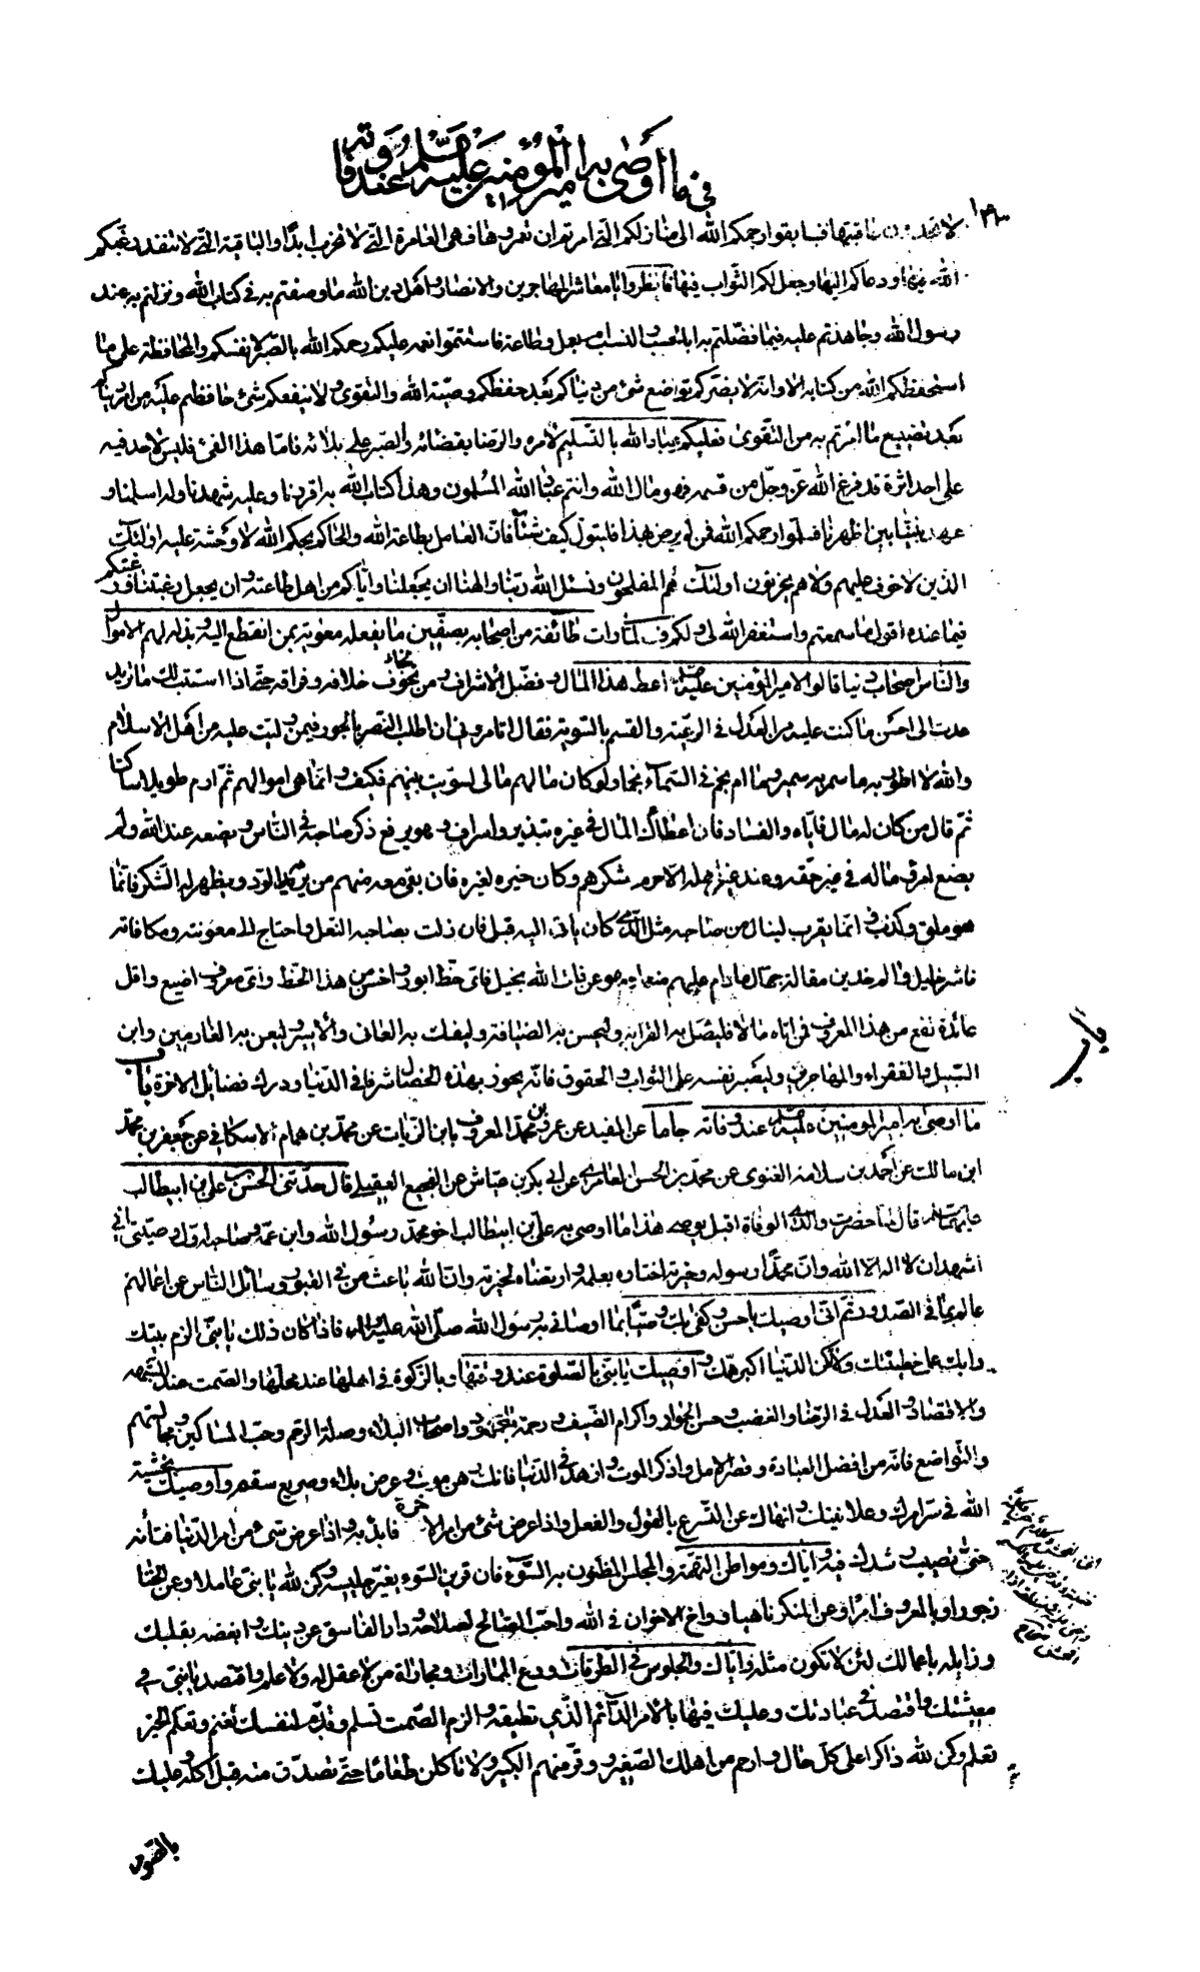 في ما اوصى به امير المؤمنين عليه السلم عند وفاته
١٣٠
لا تحمد عاقبتها فسابقوا رحمكم الله الى منازلكم التي امرتم ان تعمروها فهى العامرة التي لا تخرب ابدا والباقية التي لا تنفد رغبكم
الله فيها ودعاكم اليها وجعل لكم الثواب فيها فانظروا يا معاشر المهاجرين والانصار واهل دين الله ما وصفتم به في كتاب الله ونزلتم به عند
رسول الله وجاهدتم عليه فيما فضلتم به ابالحسب والنسب ام بعمل وطاعة فاستتموا نعمه عليكم رحمكم الله بالصبر لانفسكم والمحافظة على ما
استحفظكم الله من كتابه الا وانه لا يضركم تواضع شئ من دنياكم بعد حفظكم وصية الله والتقوى ولا ينفعكم شئ حافظتم عليه من امر دنياكم
بعد تضييع ما امرتم به من التقوى فعليكم عباد الله بالتسليم لامره والرضا بقضائه والصبر على بلائه فاما هذا الفئ فليس لاحد فيه
على احد اثرة قد فرغ الله عز وجل من قسمه فهو مال الله وانتم عباد الله المسلمون وهذا كتاب الله به اقررنا وعليه شهدنا وله اسلمنا و
عهد نبينا بين اظهرنا فسلموا رحمكم الله فمن لم يرض بهذا فليتول كيف شاء فان العامل بطاعة الله والحاكم بحكم الله لا وحشة عليه اولئك
الذين لا خوف عليهم ولا هم يحزنون اولئك هم المفلحون ونسئل الله ربنا والهنا ان يجعلنا واياكم من اهل طاعته وان يجعل رغبتنا ورغبتكم
فيما عنده اقول ما سمعتم واستغفر الله لى ولكم ف لما رات طائفة من اصحابه بصفين ما يفعله معوية بمن انقطع اليه وبذله لهم الاموال
والناس اصحاب دنيا قالوا لامير المؤمنين عليه السلم اعط هذا المال وفضل الاشراف ومن تخوف خلافه وفراقه حتى اذا استتب لك ما تريد
عدت الى احسن ما كنت عليه من العدل في الرعية والقسم بالسوية فقال اتامرونى ان اطلب النصر بالجور فيمن وليت عليه من اهل الاسلام
والله لا اطور به ما سمر به سمير وما ام نجم في السماء نجما ولو كان مالهم مالى لسويت بينهم فكيف وانما هى اموالهم ثم ازم طويلا ساكتا
ثم قال من كان له مال فاياه والفساد فان اعطاءك المال في غيره تبذير واسراف وهو يرفع ذكر صاحبه في الناس ويضعه عند الله ولم
يضع امرؤ ماله في غير حقه وعند غير اهله الا حرمه شكرهم وكان خيره لغيره فان بقى معه منهم من يريه الود ويظهر له الشكر فانما
هو ملق وكذب وانما يقرب لينال من صاحبه مثل الذى كان ياتى اليه قبل فان زلت بصاحبه النعل واحتاج الى معونته ومكافاته
فاشر خليل والام خدين مقالة جهال ما دام عليهم منعما وهو عن ذات الله بخيل فاى حظ ابور واخس من هذا الحظ واى معروف اضيع واقل
عائدة نفع من هذا المعروف فمن اتاه مالا فليصل به القرابة وليحسن به الضيافة وليفك به العانى والاسير وليعن به الغارمين وابن
السبيل والفقراء والمهاجرين وليصبر نفسه على الثواب والحقوق فانه يحوز بهذه الخصال شرفا في الدنيا ودرك فضائل الاخرة باب
باب
ما اوصى به امير المؤمنين عليه السلم عند وفاته جاما عن المفيد عن عمر بن محمد المعروف بابن الزيات عن محمد بن همام الاسكافي عن جعفر بن محمد
ابن مالك عن احمد بن سلامة الغنوى عن محمد بن الحسن العامرى عن ابى بكر بن عياش عن الفجيع العقيلى قال حدثنى الحسن بن على بن ابيطالب
عليهما السلم قال لما حضرت والدى الوفاة اقبل يوصى هذا ما اوصى به على بن ابيطالب اخو محمد رسول الله وابن عمه وصاحبه اول وصيتى انى
اشهد ان لا اله الا الله وان محمدا رسوله وخيرته اختاره بعلمه وارتضاه لخيرته وان الله باعث من في القبور وسائل الناس عن اعمالهم
عالم بما في الصدور ثم انى اوصيك يا حسن وكفى بك وصيا بما اوصانى به رسول الله صلى الله عليه واله فاذا كان ذلك يا بنى الزم بيتك
وابك على خطيئتك ولا تكن الدنيا اكبر همك واوصيك يا بنى بالصلوة عند وقتها والزكوة في اهلها عند محلها والصمت عند الشبهة
والاقتصاد والعدل في الرضا والغضب وحسن الجوار واكرام الضيف ورحمة المجهود واصحاب البلاء وصلة الرحم وحب المساكين ومجالستهم
والتواضع فانه من افضل العبادة وقصر الامل واذكر الموت وازهد في الدنيا فانك رهن موت وعرض بلاء وصريع سقم واوصيك بخشية
الله في سر امرك وعلانيتك وانهاك عن التسرع بالقول والفعل واذا عرض شئ من امر الاخرة فابدأ به واذا عرض شئ من امر الدنيا فتأنه
حتى تصيب رشدك فيه واياك ومواطن التهمة والمجلس المظنون به السوء فان قرين السوء يغير جليسه وكن لله يا بنى عاملا وعن الخنا
زجورا وبالمعروف امرا وعن المنكر ناهيا وواخ الاخوان في الله واحب الصالح لصلاحه ودار الفاسق عن دينك وابغضه بقلبك
وزايله باعمالك لئن لا تكون مثله واياك والجلوس في الطرقات ودع المماراة ومجاراة من لا عقل له ولا علم واقتصد يا بنى في
معيشتك واقتصد في عبادتك وعليك فيها بالامر الدائم الذى تطيقه والزم الصمت تسلم وقدم لنفسك تغنم وتعلم الخير
تعلم وكن لله ذاكرا على كل حال وارحم من اهلك الصغير ووقر منهم الكبير ولا تاكلن طعاما حتى تصدق منه قبل اكله وعليك
بالصوم